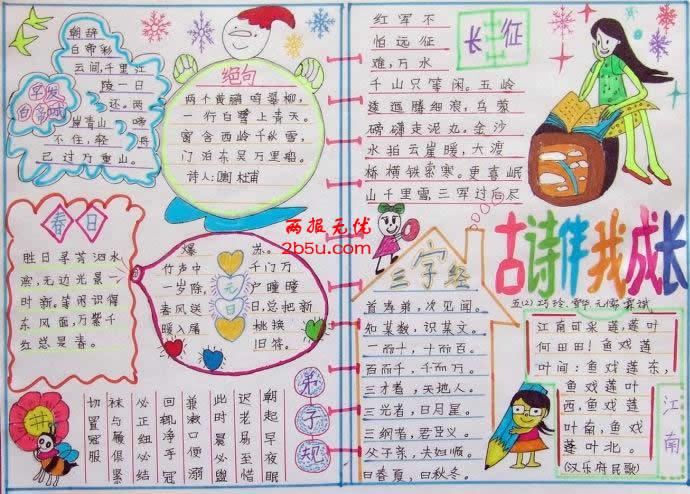 早发
白帝城
朝辞
白帝彩
云间,千里江
陵一日
还。两
岸青山
不住,轻舟
已过万重山。
绝句
两个黄鹂鸣翠柳,
一行白鹭上青天。
窗含西岭千秋雪,
门泊东吴万里船。
杜甫
春日
胜日寻芳泗水
滨,无边光景一
时新。等闲识得
东风面,万紫千
红总是春。
元日
爆
竹声中
一岁除,
春风送
暖入屠
苏。
千门万
户曈曈
日,总把新
桃换
旧符。
弟子规
朝起早夜眠
老易至惜
此时晨必盥
兼漱口便溺
回辄净手冠
必正纽必结
袜与履俱紧
切置冠服
长征
红军不
怕远征
难,万水
千山只等闲。五岭
逶迤腾细浪,乌蒙
磅礴走泥丸。金沙
水拍云崖暖,大渡
桥横铁索寒。更喜岷
山千里雪,三军过后尽
三字经
首孝弟,次见闻。
知某数,识某文。
一而十,十而百。
百而千,千而万。
三才者,天地人。
三光者,日月星。
三纲者,君臣义。
父子亲,夫妇顺。
曰春夏,曰秋冬。
古诗伴我成长
江南
江南可采莲,莲叶
何田田!鱼戏莲
叶间:鱼戏莲东,
鱼戏莲叶
西,鱼戏莲
叶南,鱼戏
莲叶北。
(汉乐府民歌)
两报无优
2b5u.com